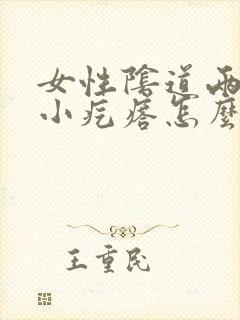 女性陰道兩
小疙瘩怎麼
王重民